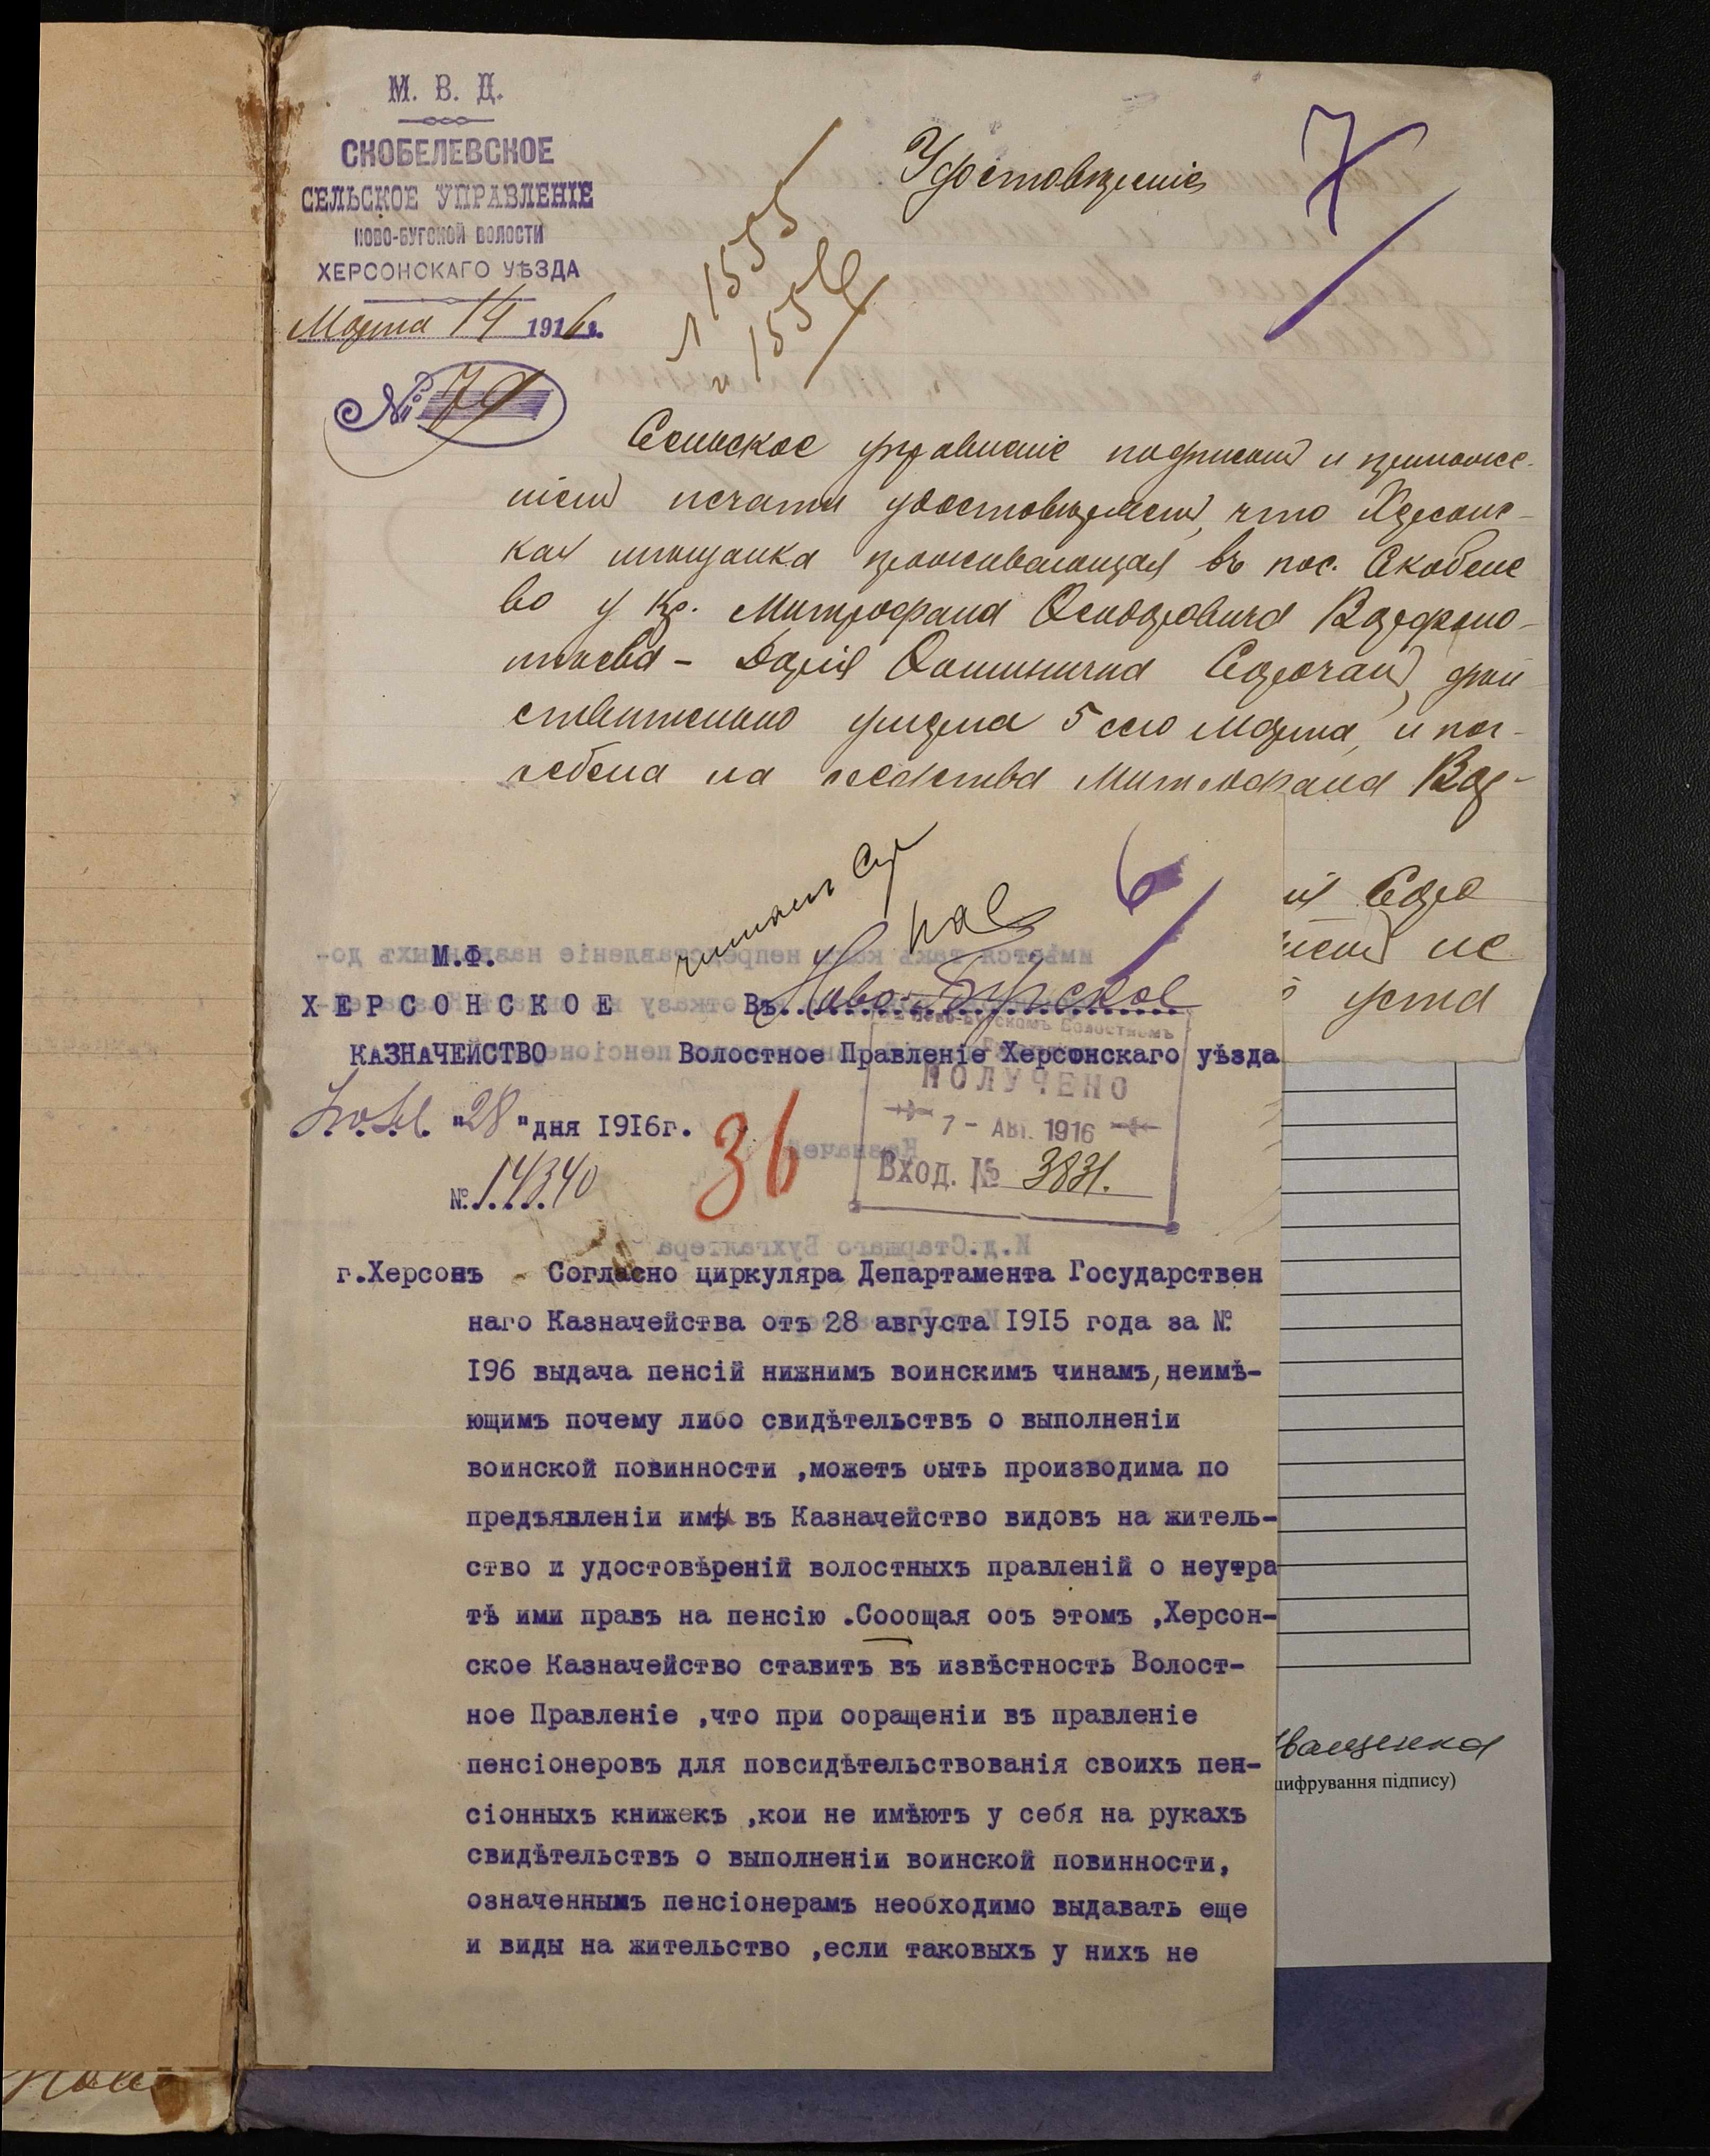 М. В. Д.
СКОБЕЛЕВСКОЕ
СЕЛЬСКОЕ УПРАВЛЕНІЕ
НОВО-БУГСКОЙ ВОЛОСТИ
ХЕРСОНСКАГО УѢЗДА
Марта 14 1916 г.
№ 79
Удостовѣреніе
7
1555
1556
Сельское управленіе подписью и приложе-
ніемъ печати удостовѣряетъ, что Херсонс-
кая мѣщанка проживающая въ пос. Скобеле
во у кр. Митрофана
Дарія дѣй
ствительно умерла 5 сего Марта, и пог-
ребена на Митрофана
не
6
М.Ф.
ХЕРСОНСКОЕ
КАЗНАЧЕЙСТВО
Въ Ново-Бугское
Волостное Правленіе Херсонскаго уѣзда
"28 "дня 1916г.
№ 14340
36
ПОЛУЧЕНО
7 - АВГ. 1916
Вход. № 3831.
г.Херсонъ - Согласно циркуляра Департамента Государствен
наго Казначейства отъ 28 августа 1915 года за №
196 выдача пенсій нижнимъ воинскимъ чинамъ,неимѣ-
ющимъ почему либо свидѣтельствъ о выполненіи
воинской повинности ,можетъ быть производима по
предъявленіи ими въ Казначейство видовъ на житель-
ство и удостовѣреній волостныхъ правленій о неутра
тѣ ими правъ на пенсію .Сообщая объ этомъ ,Херсон-
ское Казначейство ставитъ въ извѣстность Волост-
ное Правленіе ,что при обращеніи въ правленіе
пенсіонеровъ для повсидѣтельствованія своихъ пен-
сіонныхъ книжекъ ,кои не имѣютъ у себя на рукахъ
свидѣтельствъ о выполненіи воинской повинности,
означеннымъ пенсіонерамъ необходимо выдавать еще
и виды на жительство ,если таковыхъ у нихъ не
ифрування підпису)